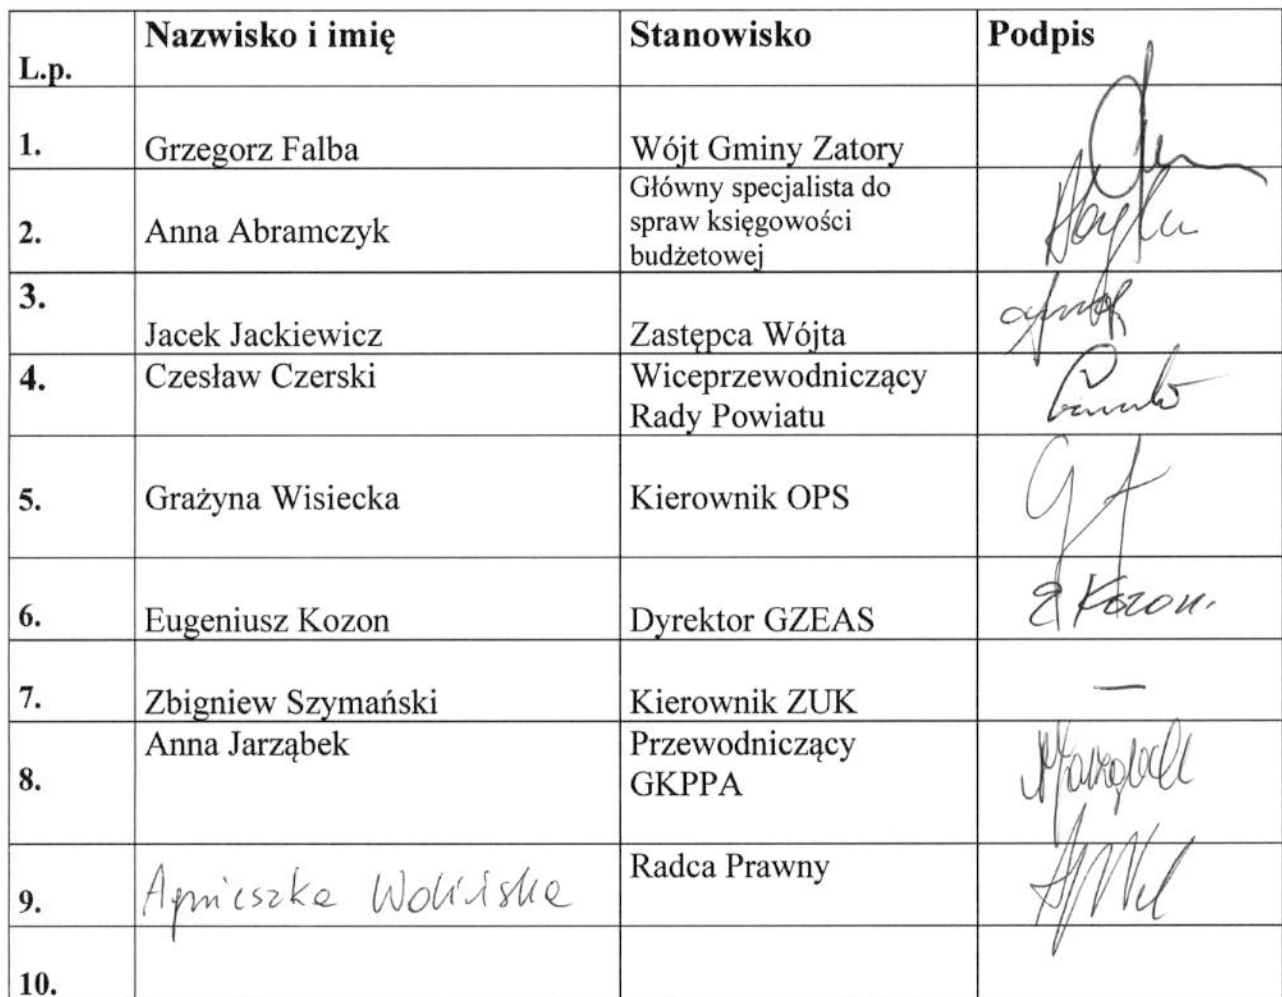 L.p. Nazwisko i imię Stanowisko Podpis
1. Grzegorz Falba Wójt Gminy Zatory
2. Anna Abramczyk Główny specjalista do
spraw księgowości
budżetowej
3.
Jacek Jackiewicz Zastępca Wójta
4. Czesław Czerski Wiceprzewodniczący
Rady Powiatu
5. Grażyna Wisiecka Kierownik OPS
6. Eugeniusz Kozon Dyrektor GZEAS E Kozon.
7. Zbigniew Szymański Kierownik ZUK —
Anna Jarząbek Przewodniczący
8. GKPPA
Radca Prawny
9. Agnieszka Wolińska
10.